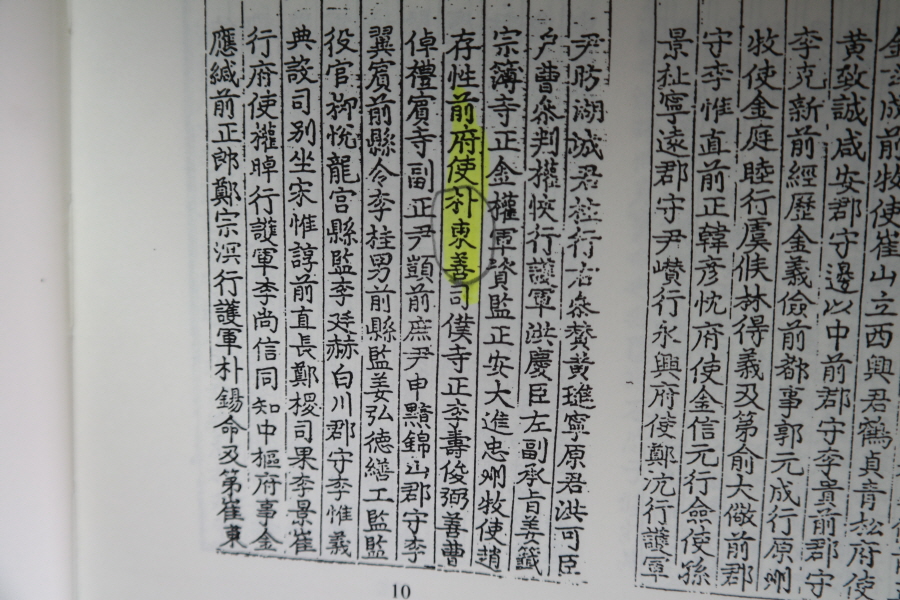 成前牧使崔山立西興君鶴貞青松府使
黃致誠咸安郡守邊以中前郡守李貴前郡守
李克新前經歷金義儉前都事郭元成行原州
牧使金庭睦行虞候林得義及第俞大儆前郡
守李惟直前正韓彦忱府使金信元行僉使孫
景祉寧遠郡守尹巑行永興府使鄭沆行護軍
尹昉湖城君柾行右參贊黃璡寧原君洪可臣
戶曹參判權悏行護軍洪慶臣左副承旨姜籤
宗簿寺正金權軍資監正安大進忠州牧使趙
存性前府使朴東善司僕寺正李壽俊弼善曹
倬禮賓寺副正尹顗前庶尹申黯錦山郡守李
翼賓前縣令李桂男前縣監姜弘德繕工監監
役官柳悅龍宮縣監李廷赫白川郡守李惟義
典設司別坐宋惟諄前直長鄭椶司果李景崔
行府使權晫行護軍李尚信同知中樞府事金
應緘前正郎鄭宗溟行護軍朴錫命及第崔東
10